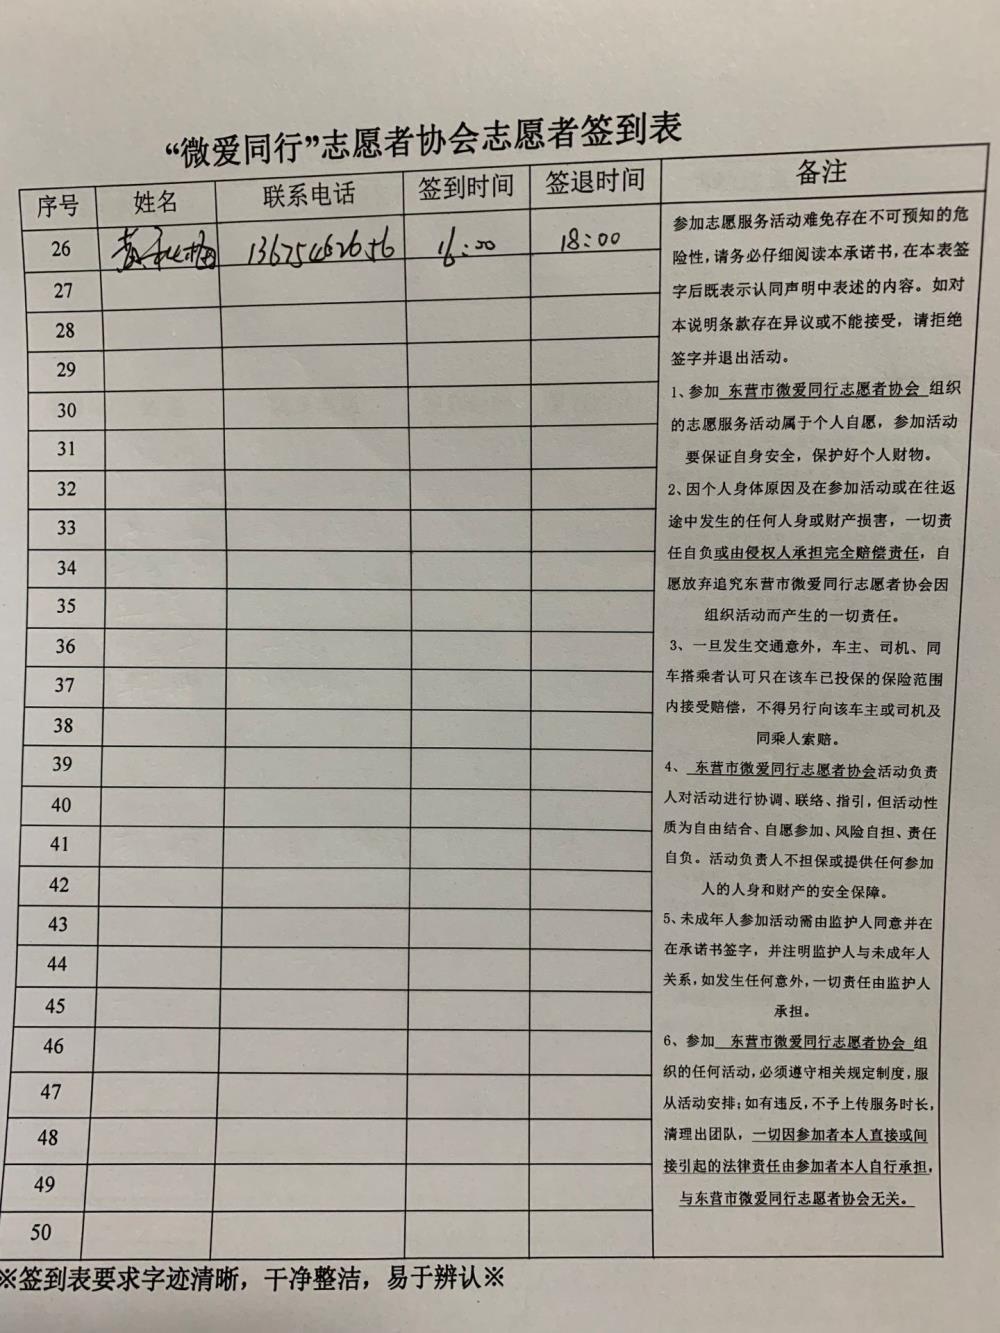 “微爱同行”志愿者协会志愿者签到表
序号 姓名 联系电话 签到时间 签退时间 备注
26 13675462656 16:00 18:00
27
28
29
30
31
32
33
34
35
36
37
38
39
40
41
42
43
44
45
46
47
48
49
50
参加志愿服务活动难免存在不可预知的危
险性，请务必仔细阅读本承诺书，在本表签
字后既表示认同声明中表述的内容。如对
本说明条款存在异议或不能接受，请拒绝
签字并退出活动。
1、参加 东营市微爱同行志愿者协会 组织
的志愿服务活动属于个人自愿，参加活动
要保证自身安全，保护好个人财物。
2、因个人身体原因及在参加活动或在往返
途中发生的任何人身或财产损害，一切责
任自负或由侵权人承担完全赔偿责任，自
愿放弃追究东营市微爱同行志愿者协会因
组织活动而产生的一切责任。
3、一旦发生交通意外，车主、司机、同
车搭乘者认可只在该车已投保的保险范围
内接受赔偿，不得另行向该车主或司机及
同乘人索赔。
4、 东营市微爱同行志愿者协会活动负责
人对活动进行协调、联络、指引，但活动性
质为自由结合、自愿参加、风险自担、责任
自负。活动负责人不担保或提供任何参加
人的人身和财产的安全保障。
5、未成年人参加活动需由监护人同意并在
在承诺书签字，并注明监护人与未成年人
关系，如发生任何意外，一切责任由监护人
承担。
6、参加 东营市微爱同行志愿者协会 组
织的任何活动，必须遵守相关规定制度，服
从活动安排；如有违反，不予上传服务时长，
清理出团队，一切因参加者本人直接或间
接引起的法律责任由参加者本人自行承担，
与东营市微爱同行志愿者协会无关。
※签到表要求字迹清晰，干净整洁，易于辨认※